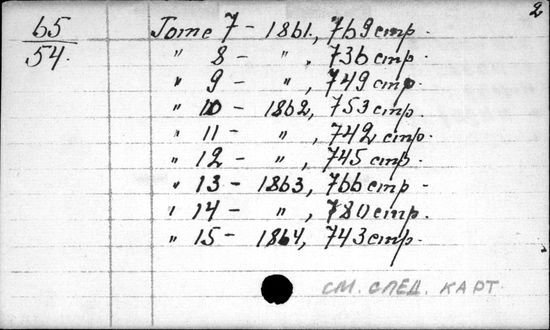 2
65
54.
Tome 7 – 1861., 769 стр.
" 8 – ", 736 стр.
" 9 – ", 749 стр.
" 10 – 1862, 753 стр.
" 11 – ", 742 стр.
" 12 – ", 745 стр.
" 13 – 1863, 766 стр.
" 14 – ", 780 стр.
" 15 – 1864, 743 стр.
СМ. СЛЕД. КАРТ.